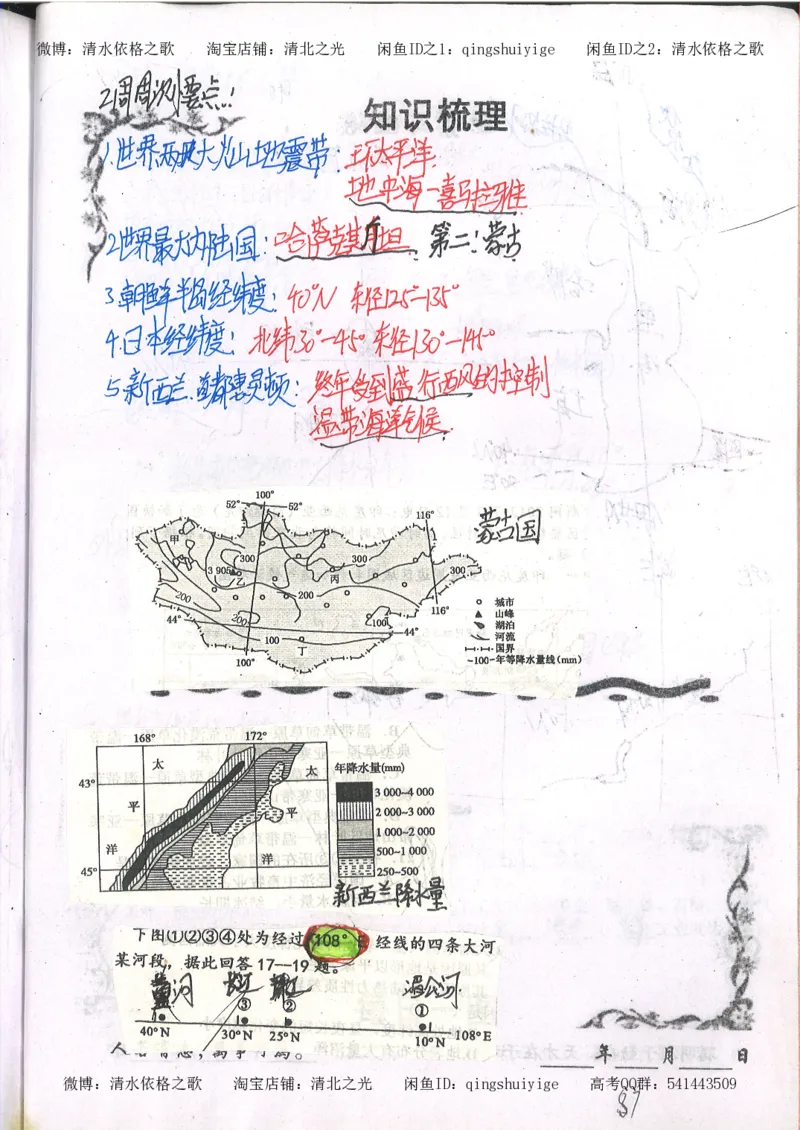 微博：清水依格之歌 淘宝店铺：清北之光 闲鱼ID之1：qingshuiyige 闲鱼ID之2：清水依格之歌
2周周测要点：
知识梳理
1.世界两大火山地震带：环太平洋
地中海—喜马拉雅
2世界最大内陆国：哈萨克斯坦、第二：蒙古
3.朝鲜半岛经纬度：40°N 东经125°-135°
4.日本经纬度：北纬30°-45° 东经130°-145°
5.新西兰.首都惠灵顿：终年受到盛行西风的控制
温带海洋气候
蒙古国
100°
52° 52°
116°
甲
300 300 300
3 905
乙 丙
200 200 200
44° 100 116°
100 44°
丁
100°
城市
山峰
湖泊
河流
国界
100 年等降水量线(mm)
168° 172°
太 太
年降水量(mm)
43°
3 000~4 000
平 平
2 000~3 000
1 000~2 000
洋
500~1 000
洋
45°
250~500
新西兰降水量
下图①②③④处为经过108°E经线的四条大河
某河段，据此回答17—19题。
黄河 长江 湄公河
③ ② ①
40°N 30°N 25°N 10°N 108°E
年 月 日
微博：清水依格之歌 淘宝店铺：清北之光 闲鱼ID：qingshuiyige 高考QQ群：541443509